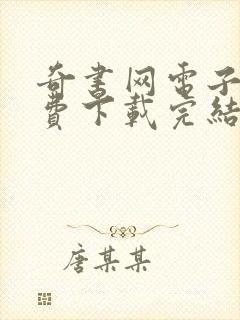 奇書网電子
費下載完結
唐某某